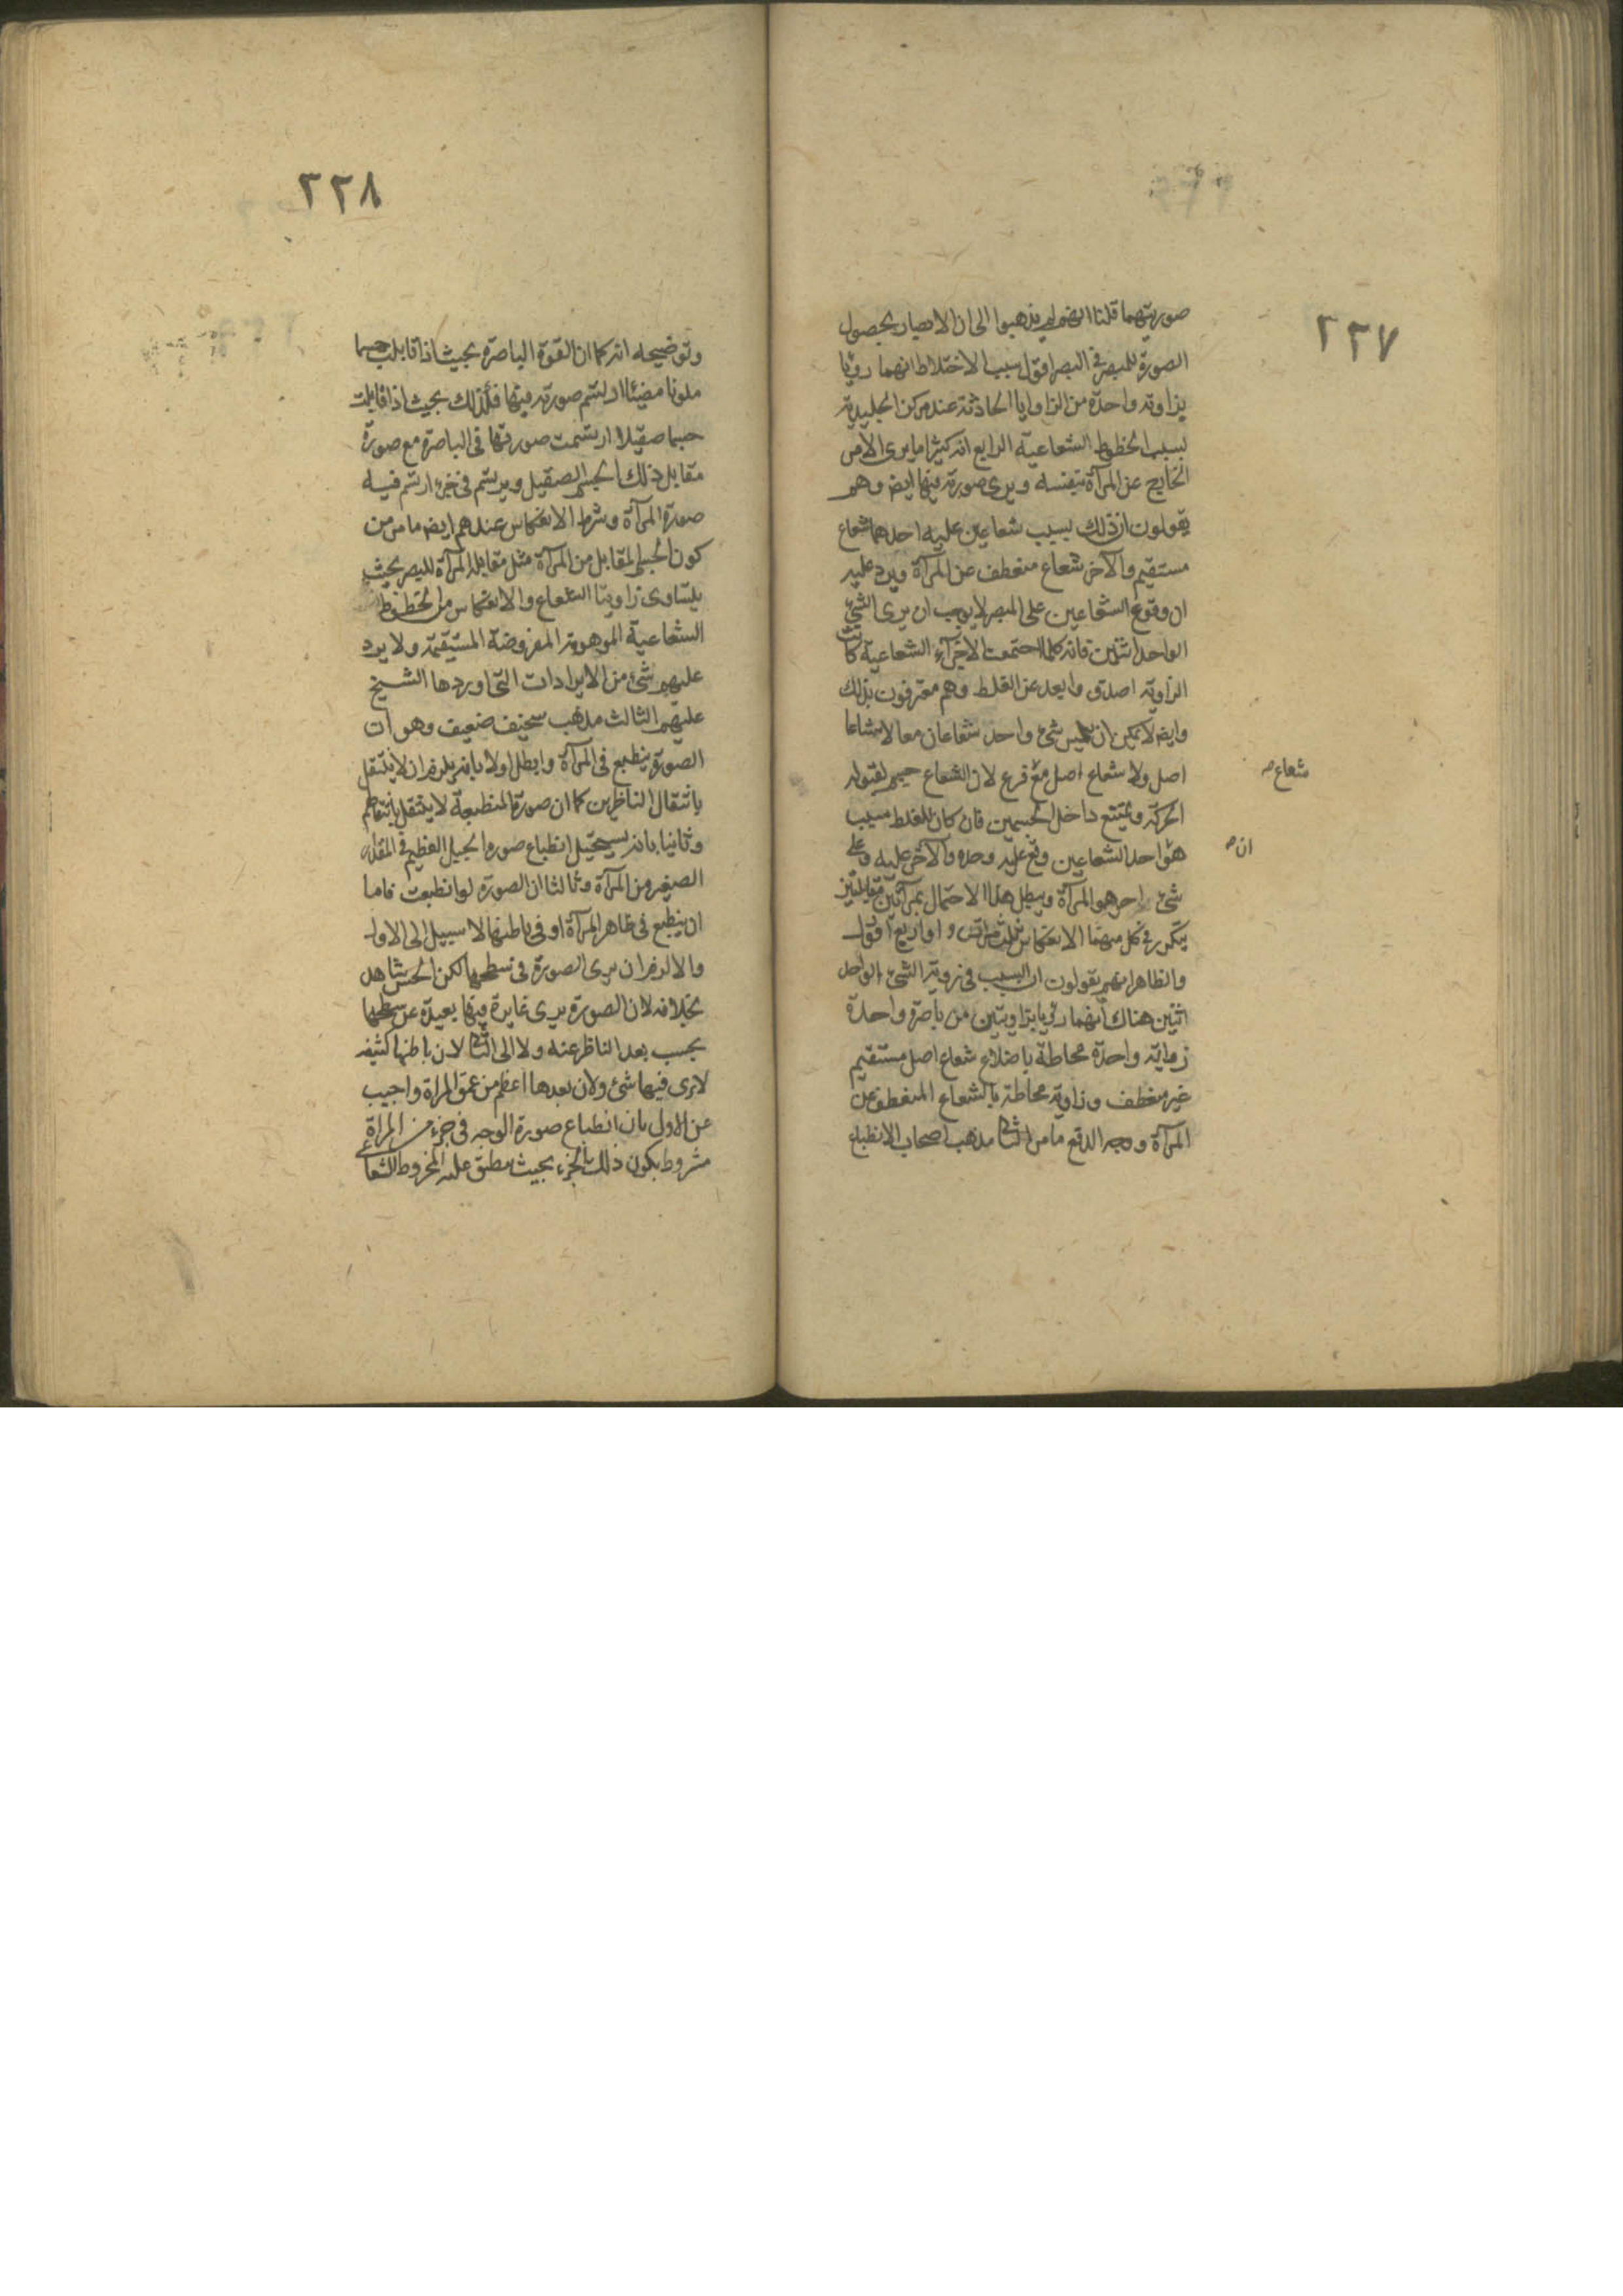 ٢٢٧
صورتيهما قلنا انهم لم يذهبوا الى ان الابصار بحصول
الصورة للمبصر في البصر اقول سبب الاختلاط انهما رؤيا
بزاوية واحدة من الزاوايا الحادثة عند مركز الجليدية
بسبب الخطوط الشعاعية الرابع انه كثيرا ما يرى الامر
الخارج عن المرآة بنفسه ويرى صورته فيها ايضا وهم
يقولون ان ذلك بسبب شعاعين عليه احدهما شعاع
مستقيم والآخر شعاع منعطف عن المرآة ويرد عليه
ان وقوع الشعاعين على المبصر لا يوجب ان يرى الشئ
الواحد اثنين فانه كلما اجتمعت الاجزآء الشعاعية كانت
الزاوية اصدق وابعد عن الغلط وهم معترفون بذلك
وايضا لا يمكن ان يلمس شئ واحد شعاعان معا لا شعاعا
اصل ولا شعاع اصل مع فرع لان الشعاع جسم لقبوله
شعاع صح
الحركة ويمتنع داخل الجسمين فان كان للغلط سبب
هو احد الشعاعين وقع عليه وحده والآخر عليه وعلى
ان صح
شئ احر هو المرآة ويبطل هذا الاحتمال بمرآتين متقابلتين
يتكرر في كل منهما الانعكاس ثلث مراتب او اربع اقول
والظاهر انهم يقولون ان السبب في رؤية الشئ الواحد
اثنين هناك انهما رؤيا بزاويتين من باصرة واحدة
زواية واحدة محاطة باضلاع شعاع اصل مستقيم
غير منعطف وزاوية محاطة بالشعاع المنعطف عن
المرآة ووجه الدفع ما مر الثانى مذهب اصحاب الانطباع
٢٢٨
وتوضيحه انه كما ان القوة الباصرة بحيث اذا قابلت جسما
ملونا مضيئا ارتسم صورته فيها فكذلك بحيث اذا قابلت
جسما صقيلا ارتسمت صورتها فى الباصرة مع صورة
مقابل ذلك الجسم الصقيل ويرتسم فى جزء ارتسم فيه
صورة المرآة وشرط الانعكاس عندهم ايضا ما مر من
كون الجسم المقابل من المرآة مثل مقابلة المرآة للبصر بحيث
يتساوى زاويتا الشعاع والانعكاس من الخطوط
الشعاعية الموهومة المفروضة المستقيمة ولا يرد
عليهم شئ من الايرادات التى اوردها الشيخ
عليهم الثالث مذهب سخيف ضعيف وهو ان
الصورة ينطبع فى المرآة وابطل اولا بانه يلزم ان لا ينتقل
بانتقال الناظرين كما ان صورة المنطبعة لا ينتقل بانتقالهم
وثانيا بانه يستحيل انطباع صورة الجبل العظيم فى المقدار
الصغير من المرآة وثالثا ان الصورة لو انطبعت فاما
ان ينطبع فى ظاهر المرآة او فى باطنها لا سبيل الى الاول
والا لزم ان يرى الصورة فى سطحها لكن الحس شاهد
بخلافه لان الصورة يرى غايرة فيها بعيدة عن سطحها
بحسب بعد الناظر عنه ولا الى الثانى لان باطنها كثيف
لا يرى فيها شئ ولان بعدها اعظم من عمق المراة واجيب
عن الاول بان انطباع صورة الوجه فى جزء من المراة
مشروط بكون ذلك الجزء بحيث ينطبق عليه المخروط الشعاعى